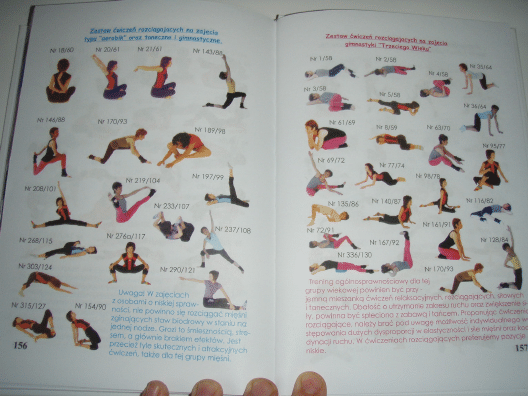 Zestaw ćwiczeń rozciągających na zajęcia
typu "aerobik" oraz taneczne i gimnastyczne.
Nr 18/60
Nr 20/61
Nr 21/61
Nr 143/88
Nr 146/88
Nr 170/93
Nr 189/98
Nr 208/101
Nr 219/104
Nr 197/99
Nr 233/107
Nr 237/108
Nr 268/115
Nr 276a/117
Nr 303/124
Nr 290/121
Nr 315/127
Nr 154/90
Uwaga! W zajęciach
z osobami o niskiej spraw-
ności, nie powinno się rozciągać mięśni
zginających staw biodrowy w staniu na
jednej nodze. Grozi to śmiesznością, stre-
sem, a głównie brakiem efektów. Jest
przecież tyle skutecznych i atrakcyjnych
ćwiczeń, także dla tej grupy mięśni.
156
Zestaw ćwiczeń rozciągających na zajęcia
gimnastyki "Trzeciego Wieku"
Nr 1/58
Nr 2/58
Nr 3/58
Nr 4/58
Nr 5/58
Nr 35/64
Nr 36/64
Nr 61/69
Nr 8/59
Nr 63/70
Nr 95/77
Nr 69/72
Nr 77/74
Nr 98/78
Nr 116/82
Nr 135/86
Nr 140/87
Nr 72/91
Nr 161/91
Nr 128/84
Nr 336/130
Nr 167/92
Nr 170/93
Trening ogólnosprawnościowy dla tej
grupy wiekowej powinien być przy-
jemną mieszanką ćwiczeń relaksacyjnych, rozciągających, siłowych
i tanecznych. Dbałość o utrzymanie zakresu ruchu oraz ćwiczenie si-
ły, powinna być spleciona z zabawą i tańcem. Proponując ćwiczenia
rozciągające, należy brać pod uwagę możliwość indywidualnego wy-
stępowania dużych dysproporcji w elastyczności i sile mięśni oraz koor-
dynacji ruchu. W ćwiczeniach rozciągających preferujemy pozycje
niskie.
157